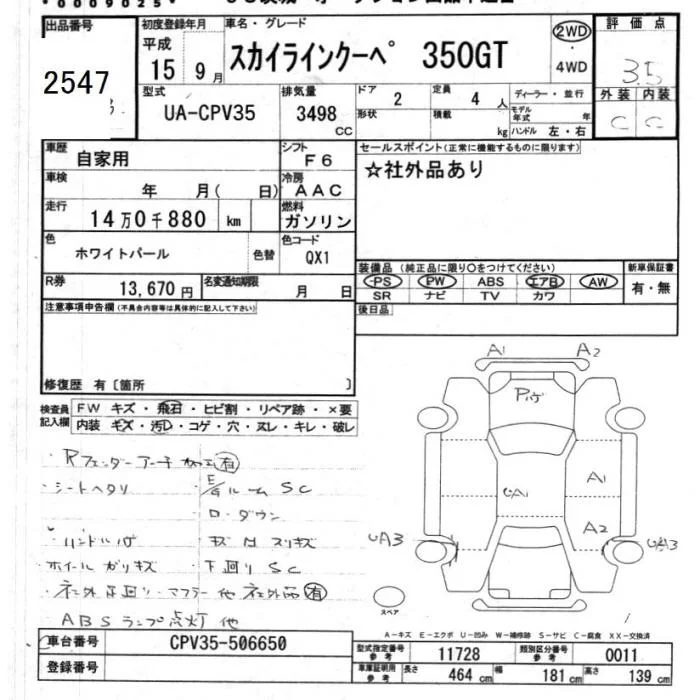 *0009025*
出品番号 初度登録年月 車名・グレード 2WD・4WD 評価点
2547 平成 15 9月 スカイラインクーペ 350GT 3.5
型式 排気量 ドア 定員 ディーラー・並行 外装 内装
UA-CPV35 3498 CC 2 4人 モデル年式 年 C C
形状 積載 kg ハンドル 左・右
車歴 自家用 シフト F6 セールスポイント(正常に機能するものに限ります)
車検 年 月( 日) 冷房 AAC ☆社外品あり
走行 14万0千880 km 燃料 ガソリン
色 ホワイトパール 色替 色コード QX1
R券 13,670円 名変通知期限 月 日
装備品(純正品に限り○をつけてください) 新車保証書
PS PW ABS エアB AW 有・無
SR ナビ TV カワ
注意事項申告欄(不具合内容等は具体的に記入して下さい) 後日品
修復歴 有〔箇所 〕
検査員記入欄 FW キズ・飛石・ヒビ割・リペア跡・×要
内装 キズ・汚レ・コゲ・穴・ヌレ・キレ・破レ
A1 A2
A1
UA1
A2
UA3 UA3
・Rフェンダーアーチ 加工有
・シートヘタリ E/Gルーム SC
ロ・ダウン
・ハンドルハゲ キズ 凹 スリキズ
ホイールガリキズ 下回り SC
・社外足回り・マフラー他 社外品有
ABSランプ点灯 他
スペア
A-キズ E-エクボ U-凹み W-補修跡 S-サビ C-腐食 XX-交換済
車台番号 CPV35-506650 型式指定番号 参考 11728 類別区分番号 参考 0011
登録番号 車庫証明用 参考 長さ 464 cm 幅 181 cm 高さ 139 cm